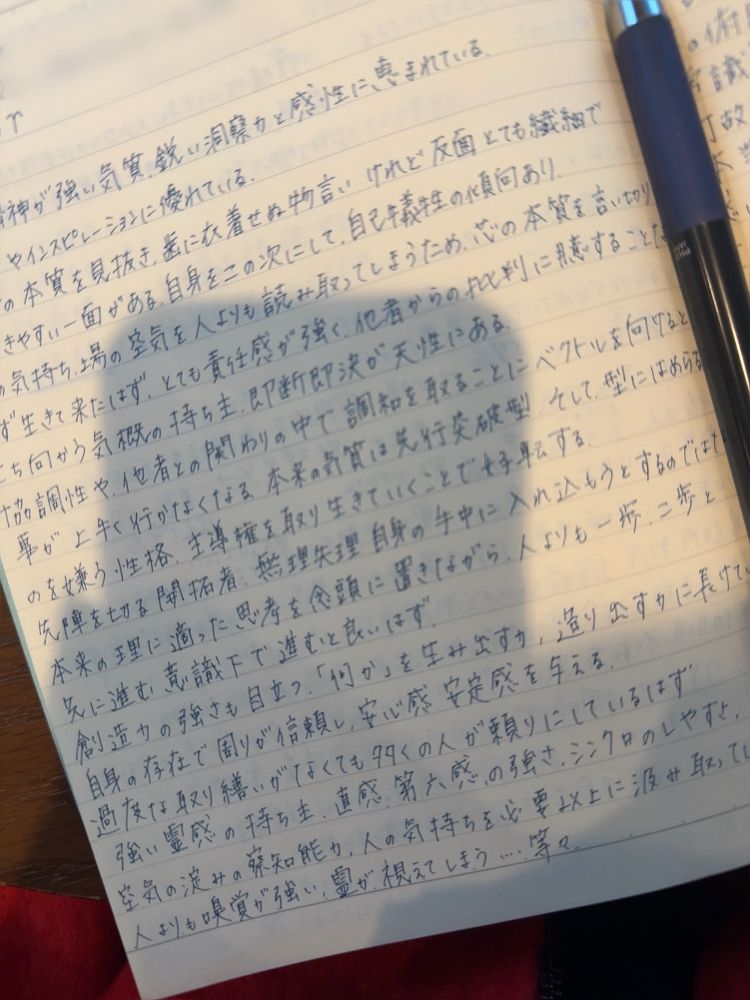 神が強い気質、鋭い洞察力と感性に恵まれている。
やインスピレーションに優れている。
の本質を見抜き、歯に衣着せぬ物言い けれど反面とても繊細で
きやすい一面がある。自身をこの次にして、自己犠牲の傾向あり。
の気持ち、場の空気を人よりも読み取ってしまうため、芯の本質を言い切り
ず生きて来たはず。とても責任感が強く、他者からの批判に臆すること
ち向かう気概の持ち主、即断即決が天性にある。
協調性や、他者との関わりの中で調和を取ることにベクトルを向けると
事が上手く行かなくなる。本来の気質は先行突破型、そして、型にはめら
のを嫌う性格、主導権を取り生きていくことで好転する。
先陣を切る開拓者、無理矢理自身の手中に入れ込もうとするのではな
本来の理に適った思考を念頭に置きながら、人よりも一歩、二歩と
先に進む意識下で進むと良いはず。
創造力の強さも目立つ、「何か」を生み出す力、造り出す力に長けてい
自身の存在で周りが信頼し、安心感 安定感を与える。
過度な取り繕いがなくても多くの人が頼りにしているはず
強い霊感の持ち主、直感、第六感、の強さ、シンクロのしやすさ、
空気の淀みの察知能力、人の気持ちを必要以上に汲み取ってし
人よりも嗅覚が強い、霊が視えてしまう…等々、
の術
識
故
本